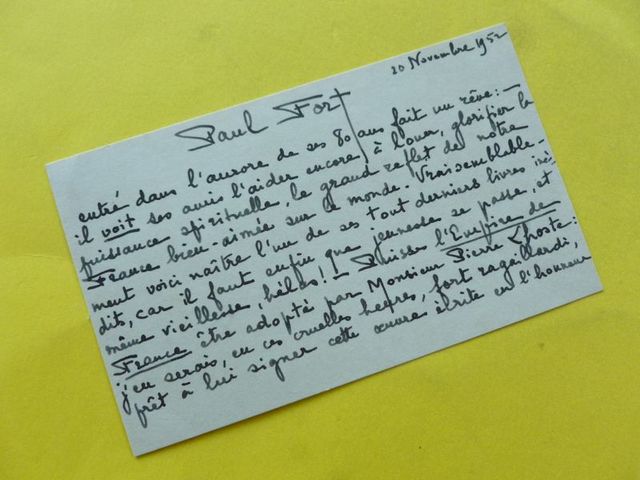 20 Novembre 1952
Paul Fort
entré dans l'aurore de ses 80 ans fait un rêve : —
il voit ses amis l'aider encore à louer, glorifier la
puissance spirituelle, le grand reflet de notre
France bien-aimée sur le monde. Vraisemblable-
ment voici naître l'un de ses tout derniers livres iné-
dits, car il faut enfin que jeunesse se passe, et
même vieillesse, hélas ! — Puisse l'Empire de
France être adopté par Monsieur Pierre :
j'en serais, en ces cruelles heures, fort ragaillardi,
prêt à lui signer cette œuvre écrite en l'honneur